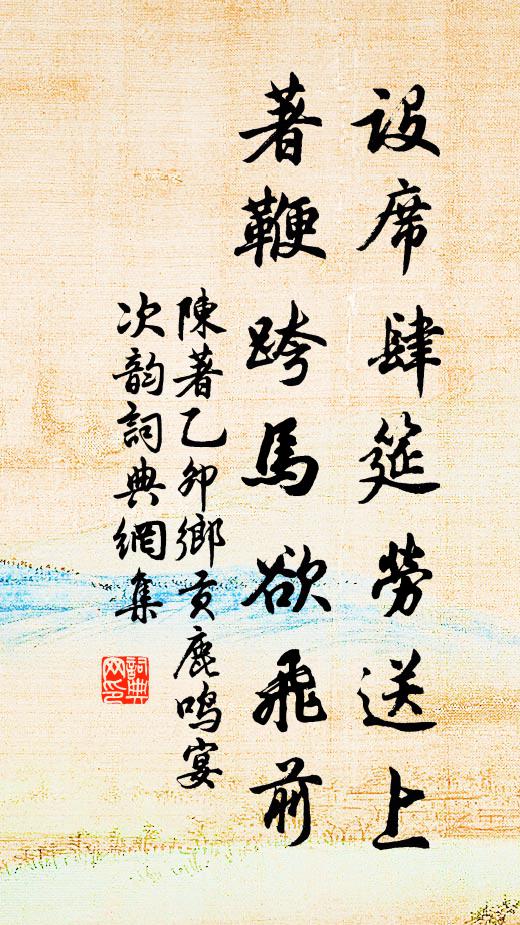 設席肆筵勞送上
著鞭跨馬欲飛前
陳著乙卯鄉貢鹿鳴宴
次韵詞典網集
詞典
网印